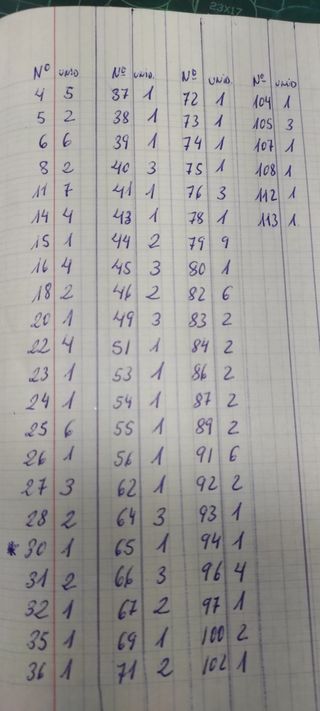 23X17
Nº UNID. Nº UNID. Nº UNID. Nº UNID
4 5 37 1 72 1 104 1
5 2 38 1 73 1 105 3
6 6 39 1 74 1 107 1
8 2 40 3 75 1 108 1
11 7 41 1 76 3 112 1
14 4 43 1 78 1 113 1
15 1 44 2 79 9
16 4 45 3 80 1
18 2 46 2 82 6
20 1 49 3 83 2
22 4 51 1 84 2
23 1 53 1 86 2
24 1 54 1 87 2
25 6 55 1 89 2
26 1 56 1 91 6
27 3 62 1 92 2
28 2 64 3 93 1
* 30 1 65 1 94 1
31 2 66 3 96 4
32 1 67 2 97 1
35 1 69 1 100 2
36 1 71 2 102 1